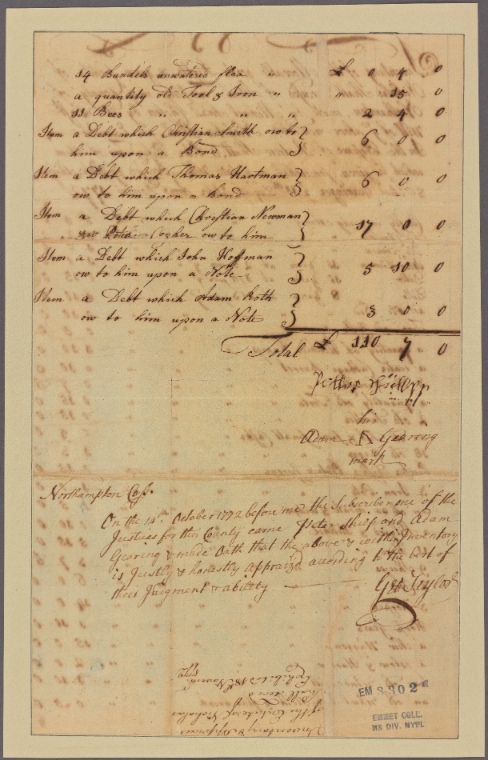 14 Bundels unwatered flax " £ 0 4 0
a quantity old Tool & Iron " " 15 0
11 Bees " " " 2 4 0
Item a Debt which Christian Smith ow to
him upon a Bond 6 0 0
Item a Debt which Thomas Hartman
ow to him upon a bond 6 0 0
Item a Debt which Christian Newman
Cosher ow to him 17 0 0
Item a Debt which John Hoffman
ow to him upon a Note 5 10 0
Item a Debt which Adam Roth
ow to him upon a Note 3 0 0
Total £ 110 7 0
his
Adam A Gearing
mark
Northampton Css.
On the 14th October 1772 before me the Subscriber one of the
Justices for this County came Peter and Adam
Gearing & made Oath that the above & within Inventory
is Justly & honestly appraized according to the best of
their Judgment & ability
Geo Taylor
Inventory &
of the Estate of Nicholas
EM 8302
EMMET COLL.
MS DIV. NYPL